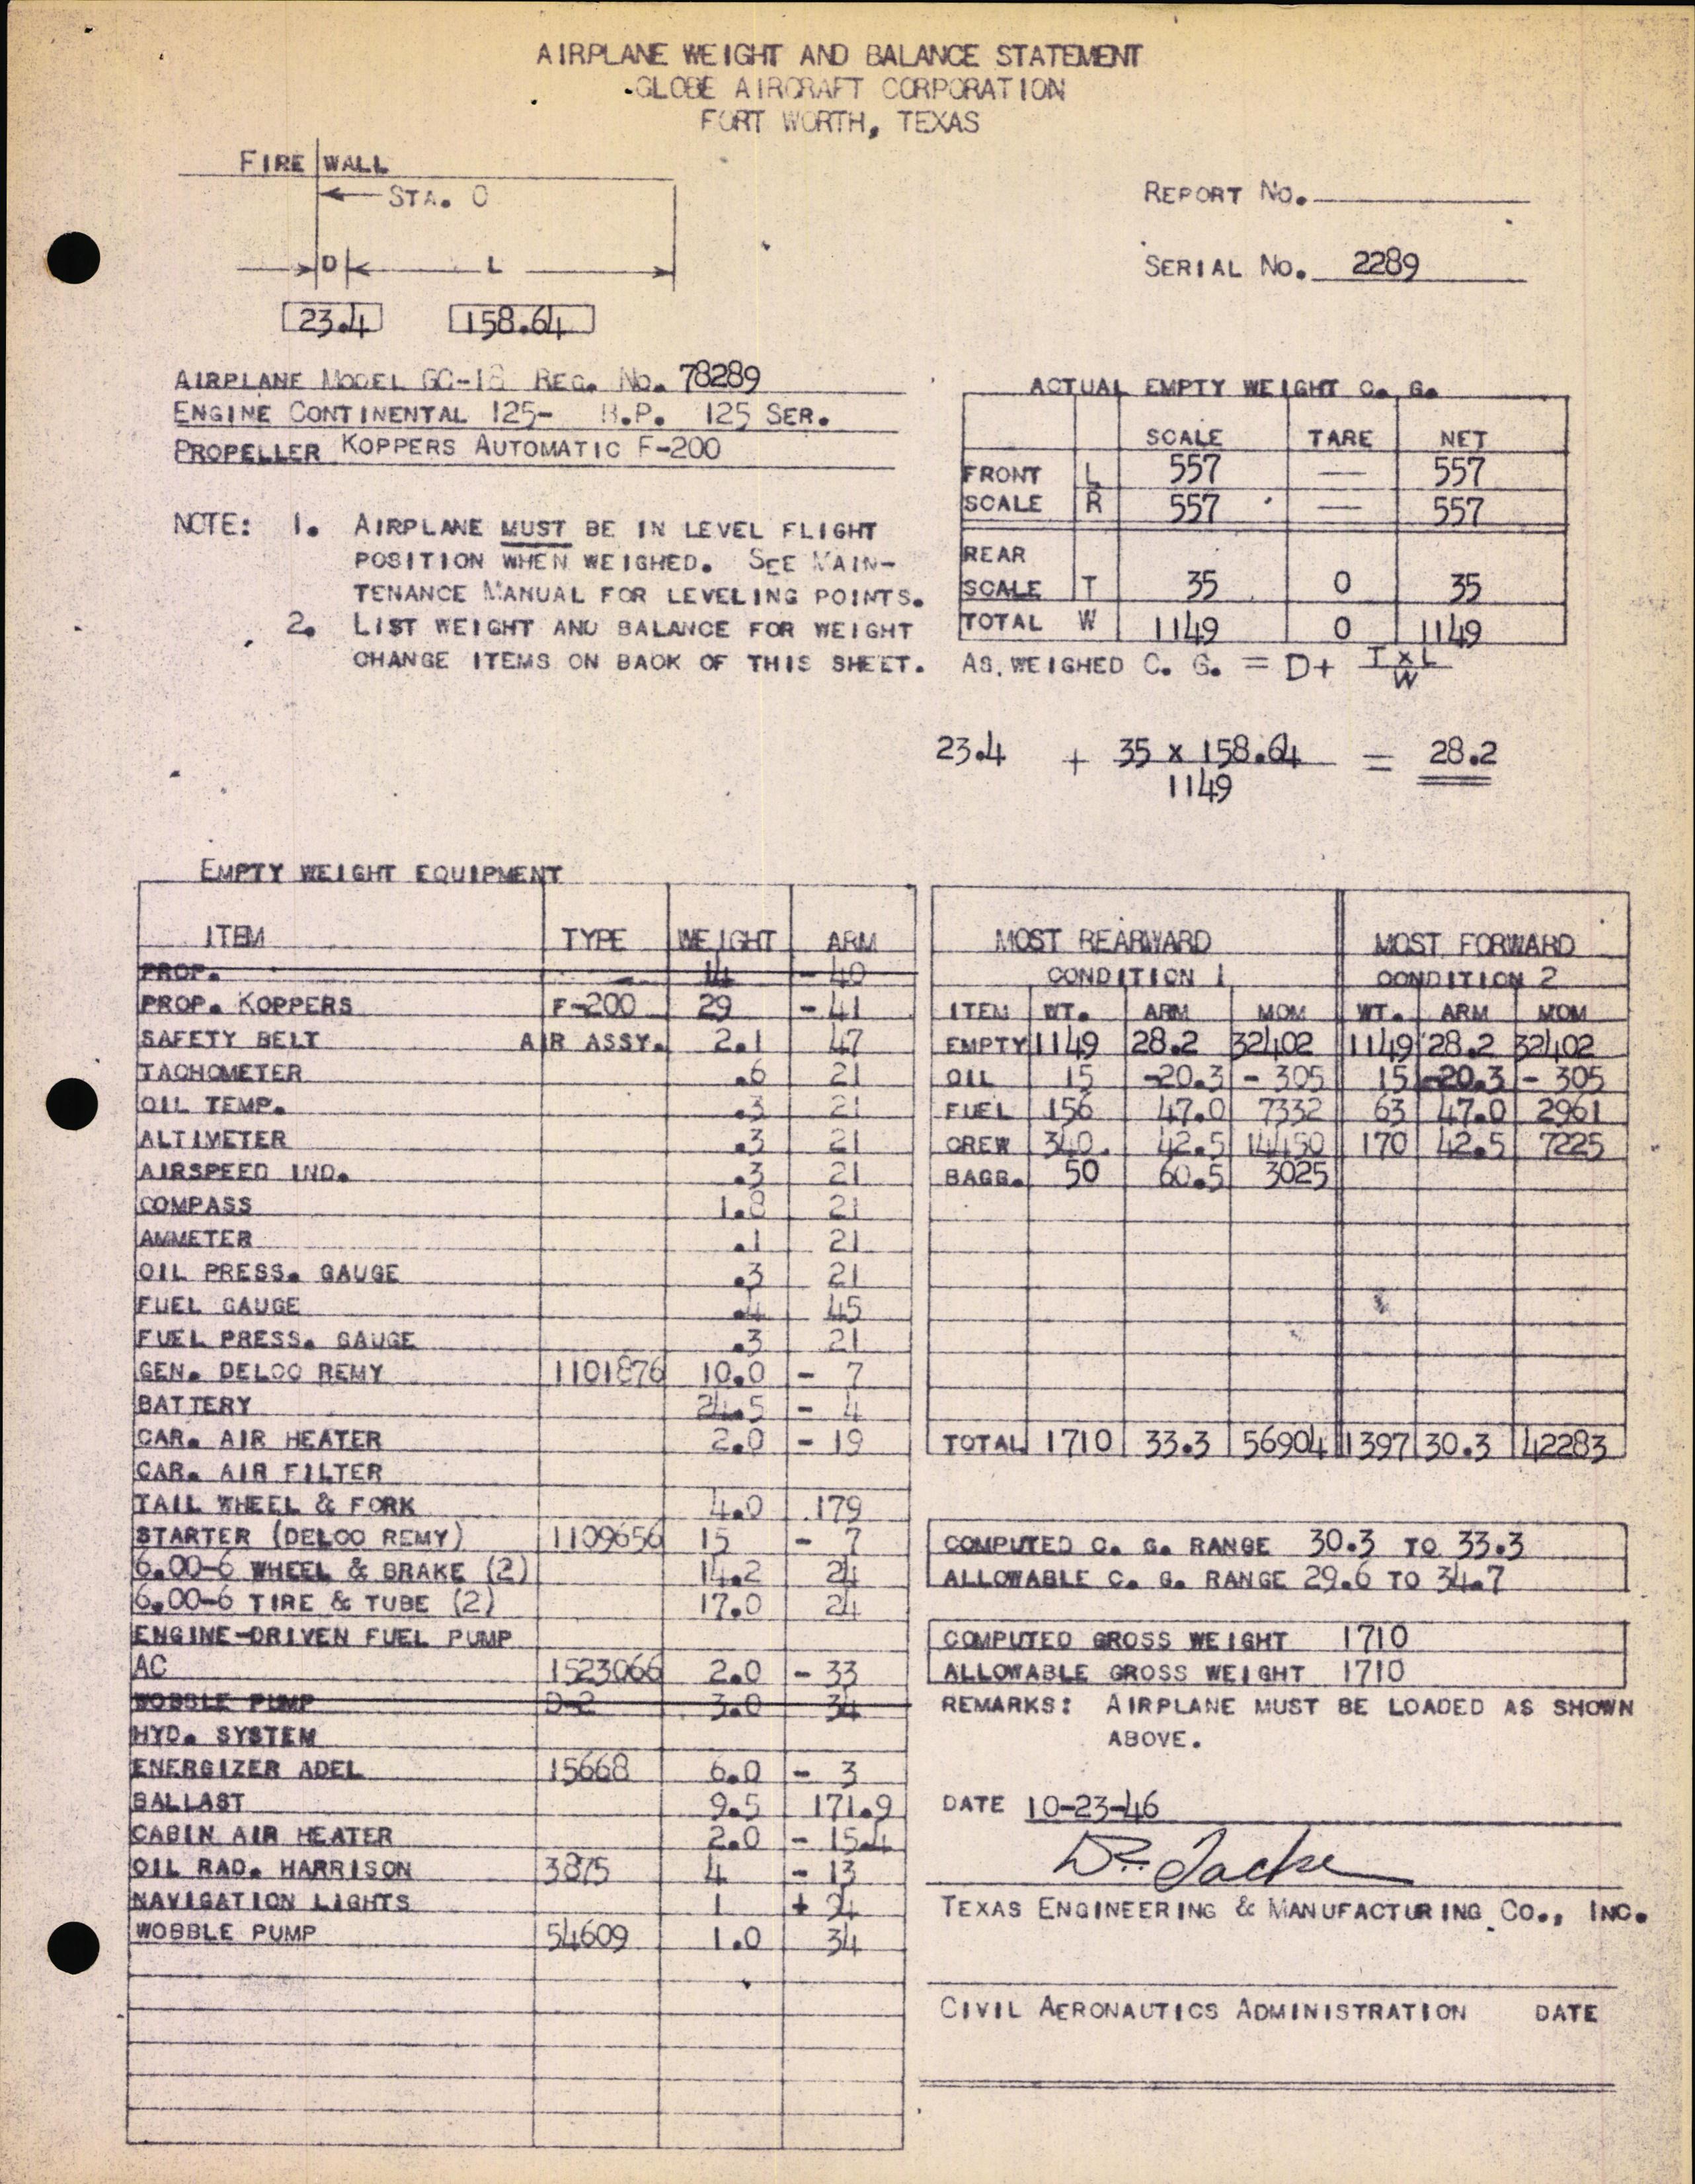 AIRPLANE WEIGHT AND BALANCE STATEMENT
GLOBE AIRCRAFT CORPORATION
FORT WORTH, TEXAS
FIRE WALL
STA. 0
D L
23.4 158.64
REPORT NO.
SERIAL NO. 2289
AIRPLANE MODEL GC-1B REG. NO. 78289
ENGINE CONTINENTAL 125- H.P. 125 SER.
PROPELLER KOPPERS AUTOMATIC F-200
NOTE: 1. AIRPLANE MUST BE IN LEVEL FLIGHT
POSITION WHEN WEIGHED. SEE MAIN-
TENANCE MANUAL FOR LEVELING POINTS.
2. LIST WEIGHT AND BALANCE FOR WEIGHT
CHANGE ITEMS ON BACK OF THIS SHEET.
ACTUAL EMPTY WEIGHT C. G.
SCALE TARE NET
FRONT L 557 — 557
SCALE R 557 — 557
REAR
SCALE T 35 0 35
TOTAL W 1149 0 1149
AS WEIGHED C. G. = D+ T x L
W
23.4 + 35 x 158.64 = 28.2
1149
EMPTY WEIGHT EQUIPMENT
ITEM TYPE WEIGHT ARM
PROP. 14 - 40
PROP. KOPPERS F-200 29 - 41
SAFETY BELT AIR ASSY. 2.1 47
TACHOMETER .6 21
OIL TEMP. .3 21
ALTIMETER .3 21
AIRSPEED IND. .3 21
COMPASS 1.8 21
AMMETER .1 21
OIL PRESS. GAUGE .3 21
FUEL GAUGE .4 45
FUEL PRESS. GAUGE .3 21
GEN. DELCO REMY 1101876 10.0 - 7
BATTERY 24.5 - 4
CAR. AIR HEATER 2.0 - 19
CAR. AIR FILTER
TAIL WHEEL & FORK 4.0 179
STARTER (DELCO REMY) 1109656 15 - 7
6.00-6 WHEEL & BRAKE (2) 14.2 24
6.00-6 TIRE & TUBE (2) 17.0 24
ENGINE-DRIVEN FUEL PUMP
AC 1523066 2.0 - 33
WOBBLE PUMP D-2 3.0 34
HYD. SYSTEM
ENERGIZER ADEL 15668 6.0 - 3
BALLAST 9.5 171.9
CABIN AIR HEATER 2.0 - 15.4
OIL RAD. HARRISON 3875 4 - 13
NAVIGATION LIGHTS 1 + 94
WOBBLE PUMP 54609 1.0 34
MOST REARWARD MOST FORWARD
CONDITION 1 CONDITION 2
ITEM WT. ARM MOM WT. ARM MOM
EMPTY 1149 28.2 32402 1149 28.2 32402
OIL 15 -20.3 - 305 15 -20.3 - 305
FUEL 156 47.0 7332 63 47.0 2961
CREW 340. 42.5 14450 170 42.5 7225
BAGG. 50 60.5 3025
TOTAL 1710 33.3 56904 1397 30.3 42283
COMPUTED C. G. RANGE 30.3 TO 33.3
ALLOWABLE C. G. RANGE 29.6 TO 34.7
COMPUTED GROSS WEIGHT 1710
ALLOWABLE GROSS WEIGHT 1710
REMARKS: AIRPLANE MUST BE LOADED AS SHOWN
ABOVE.
DATE 10-23-46
TEXAS ENGINEERING & MANUFACTURING CO., INC.
CIVIL AERONAUTICS ADMINISTRATION DATE